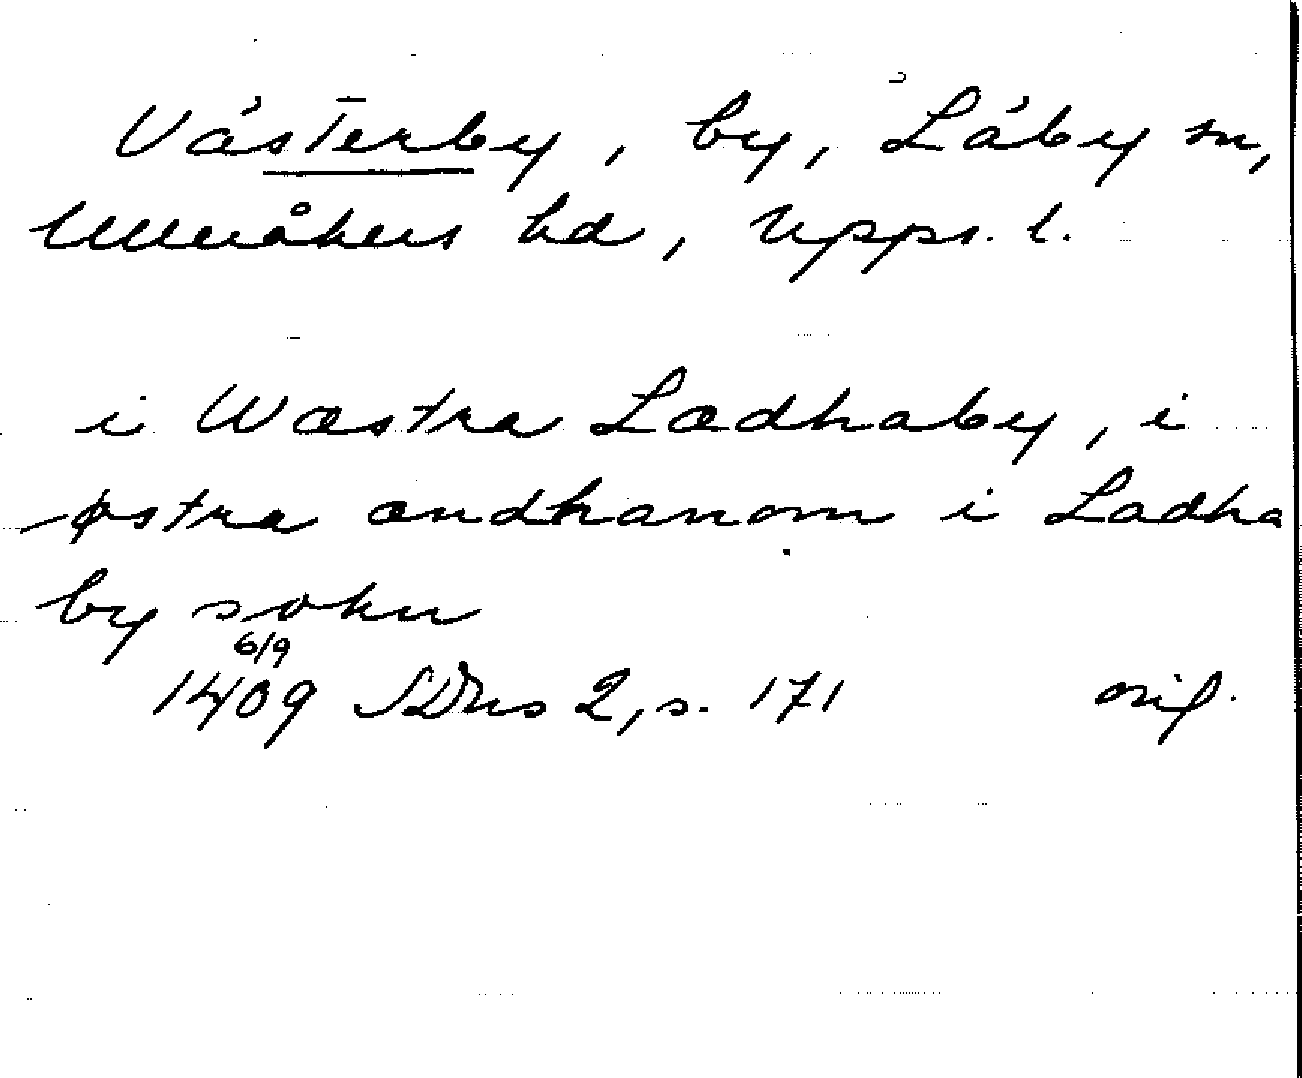 Västerby, by, Läby sn,
Ulleråkers hd, Upps. l.
i Wæstra Lædhaby, i
østra ændhanom i Ladha
by sokn
6/9
1409 SDns 2, s. 171 orig.